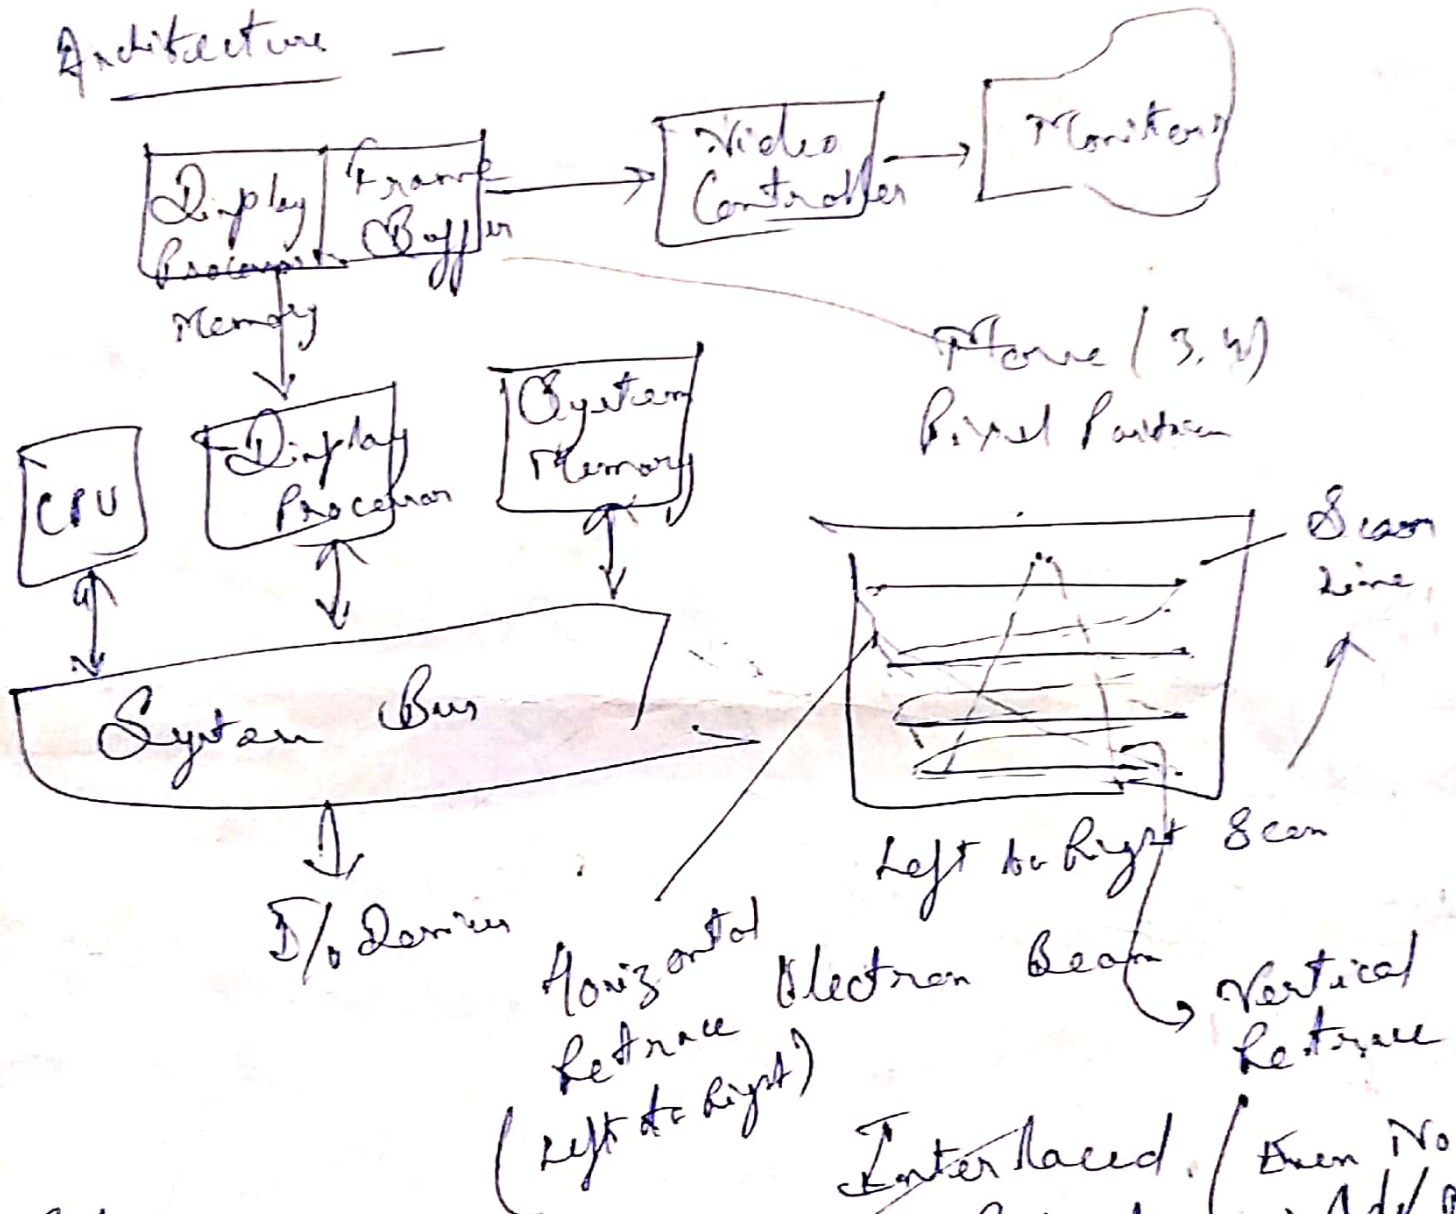 Architecture —
Display
Processor
Memory
Frame
Buffer
Video
Controller
Monitor
(3, 4)
Pixel Position
CPU
Display
Processor
System
Memory
System Bus
I/o Devices
Scan
Line
Left to Right Scan
Horizontal
Retrace
(Left to Right)
Electron Beam
Vertical
Retrace
Interlaced. (Even No